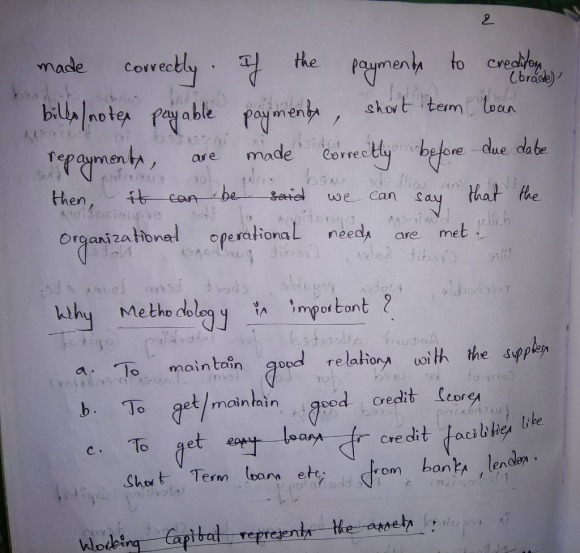 2
made correctly. If the payments to creditors,
(trade)
bills/notes payable payments, short term loan
repayments, are made correctly before due date
then, it can be said we can say that the
organizational operational needs are met.
Why Methodology is important?
a. To maintain good relations with the suppliers
b. To get/maintain good credit scores
c. To get easy loans fr credit facilities like
Short Term loans etc; from banks, lendors.
Working Capital represents the assets :